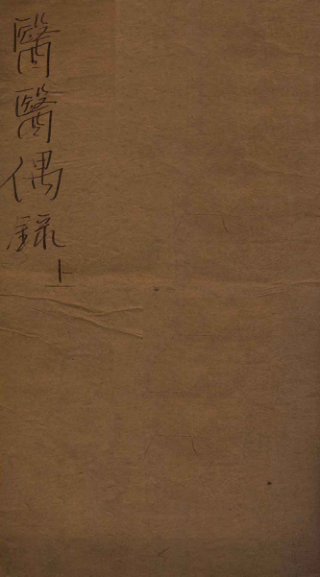 醫醫偶錄上